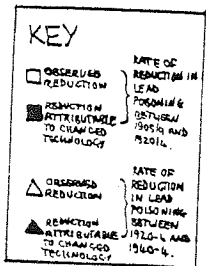 KEY
OBSERVED
REDUCTION
REDUCTION
ATTRIBUTABLE
TO CHANGED
TECHNOLOGY
RATE OF
REDUCTION IN
LEAD
POISONING
BETWEEN
AND
OBSERVED
REDUCTION
REDUCTION
ATTRIBUTABLE
TO CHANGED
TECHNOLOGY
RATE OF
REDUCTION
IN LEAD
POISONING
BETWEEN
1920-4 AND
1940-4.